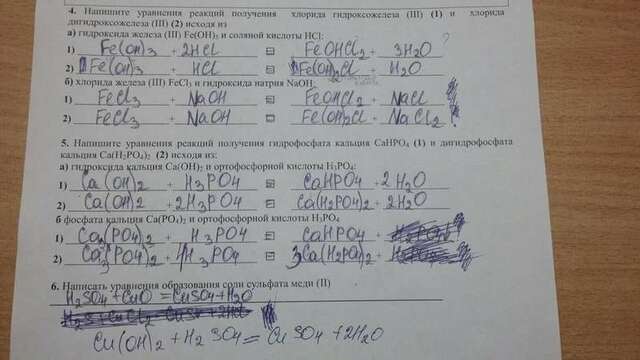 4. Напишите уравнения реакций получения хлорида гидроксожелеза (III) (1) и хлорида
дигидроксожелеза (III) (2) исходя из
а) гидроксида железа (III) Fe(OH)3 и соляной кислоты HCl:
1) Fe(OH)3 + 2HCl = FeOHCl2 + 3H2O
2) Fe(OH)3 + HCl = Fe(OH)2Cl + H2O
б) хлорида железа (III) FeCl3 и гидроксида натрия NaOH
1) FeCl3 + NaOH = FeOHCl2 + NaCl
2) FeCl3 + NaOH = Fe(OH)2Cl + NaCl2
5. Напишите уравнения реакций получения гидрофосфата кальция CaHPO4 (1) и дигидрофосфата
кальция Ca(H2PO4)2 (2) исходя из:
а) гидроксида кальция Ca(OH)2 и ортофосфорной кислоты H3PO4:
1) Ca(OH)2 + H3PO4 = CaHPO4 + 2H2O
2) Ca(OH)2 + 2H3PO4 = Ca(H2PO4)2 + 2H2O
б фосфата кальция Ca(PO4)2 и ортофосфорной кислоты H3PO4
1) Ca3(PO4)2 + H3PO4 = CaHPO4 +
2) Ca3(PO4)2 + 4H3PO4 = 3Ca(H2PO4)2 +
6. Написать уравнения образования соли сульфата меди (II)
H2SO4 + CuO = CuSO4 + H2O
Cu(OH)2 + H2SO4 = CuSO4 + 2H2O